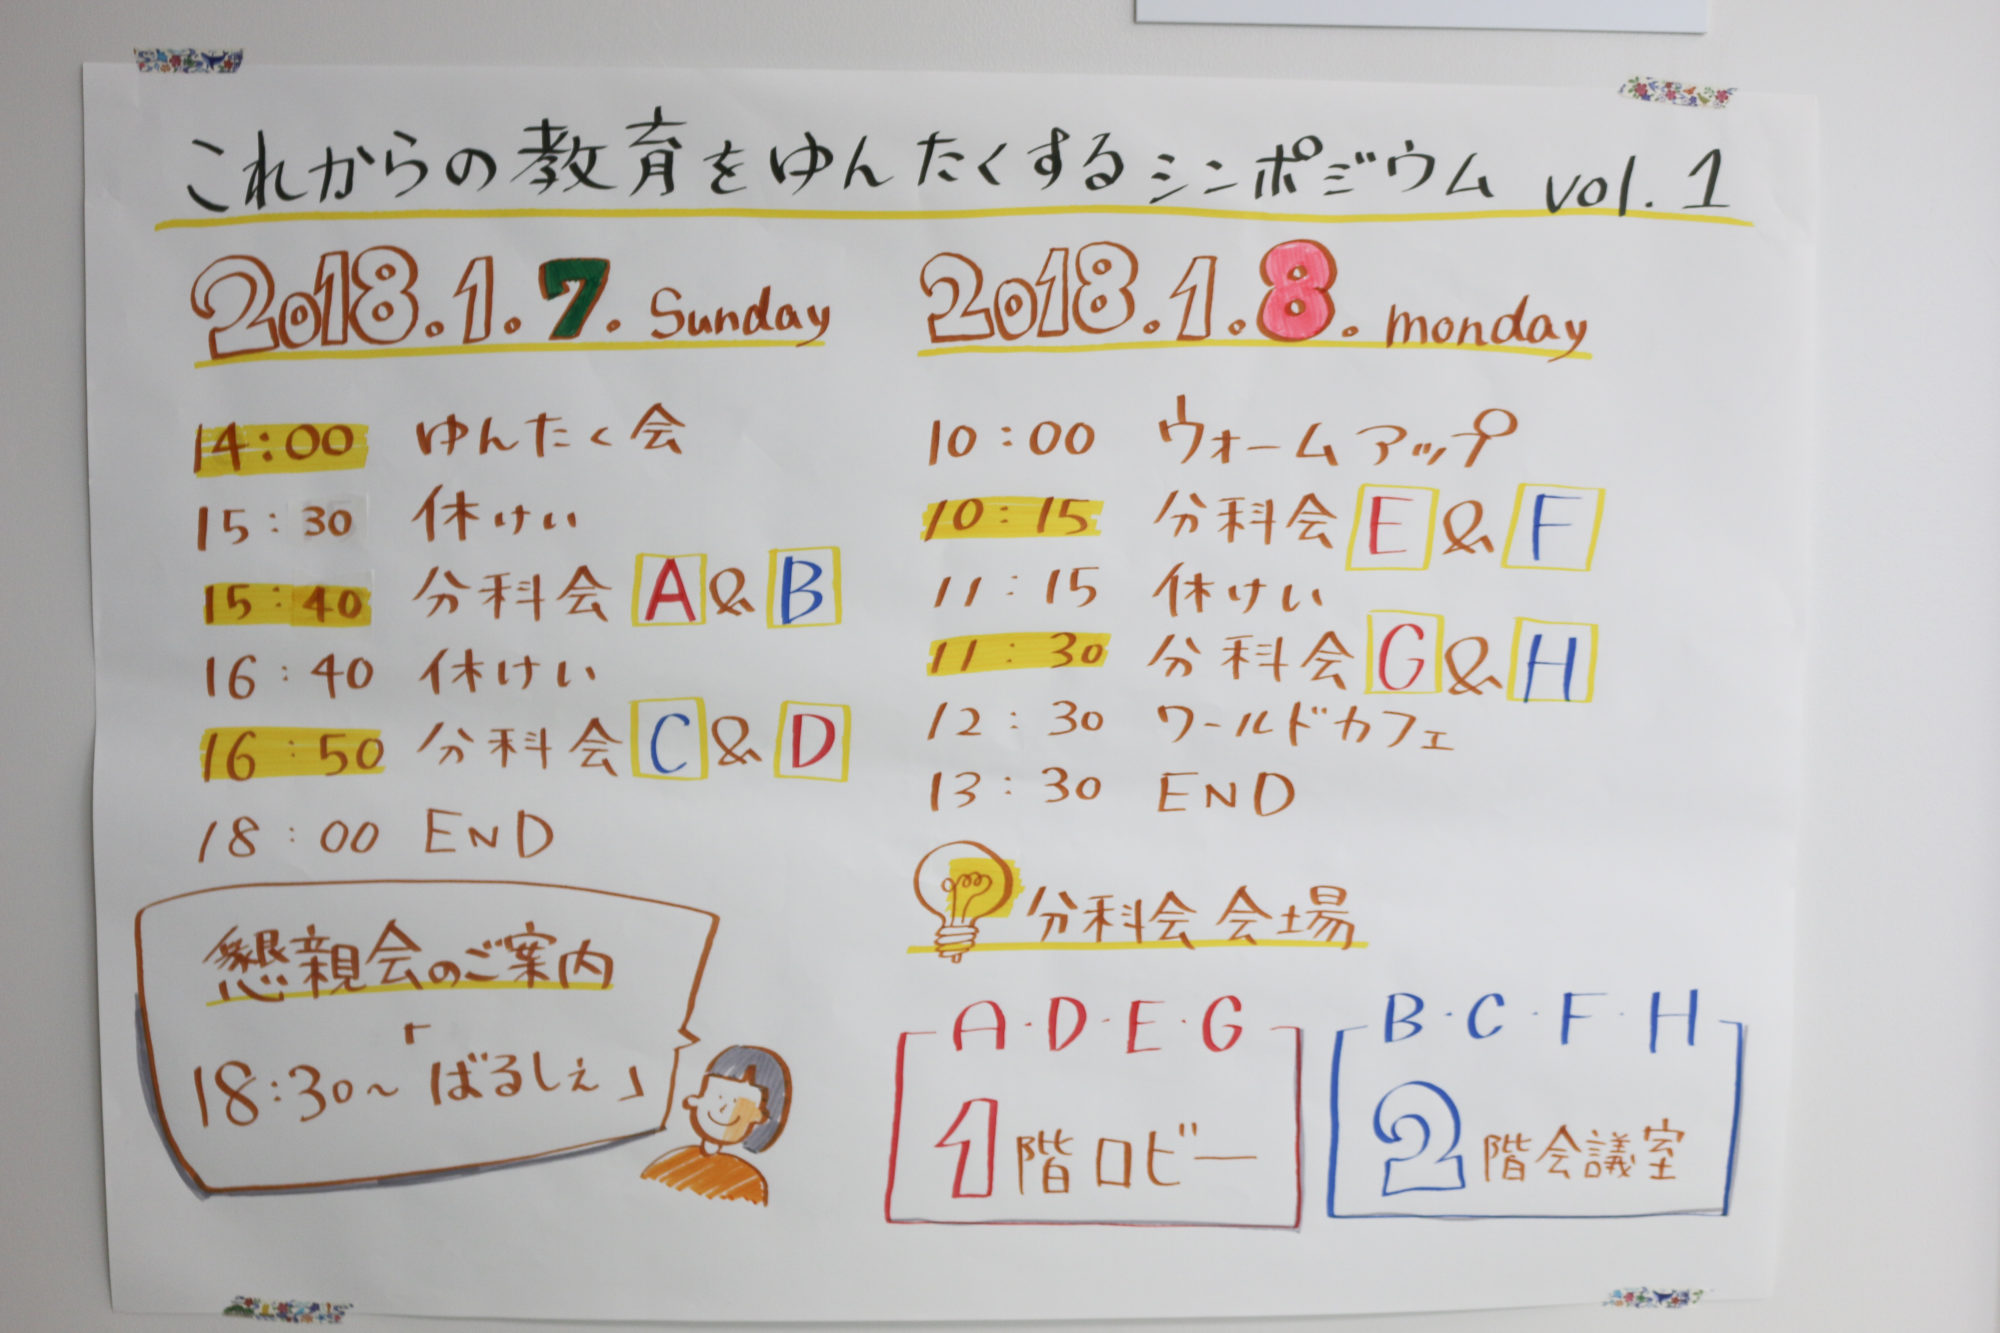 これからの教育をゆんたくするシンポジウム vol.1
2018.1.7. Sunday
14:00 ゆんたく会
15:30 休けい
15:40 分科会 A & B
16:40 休けい
16:50 分科会 C & D
18:00 END
懇親会のご案内
18:30～「ばるしぇ」
2018.1.8. monday
10:00 ウォームアップ
10:15 分科会 E & F
11:15 休けい
11:30 分科会 G & H
12:30 ワールドカフェ
13:30 END
分科会 会場
A・D・E・G
1階ロビー
B・C・F・H
2階会議室